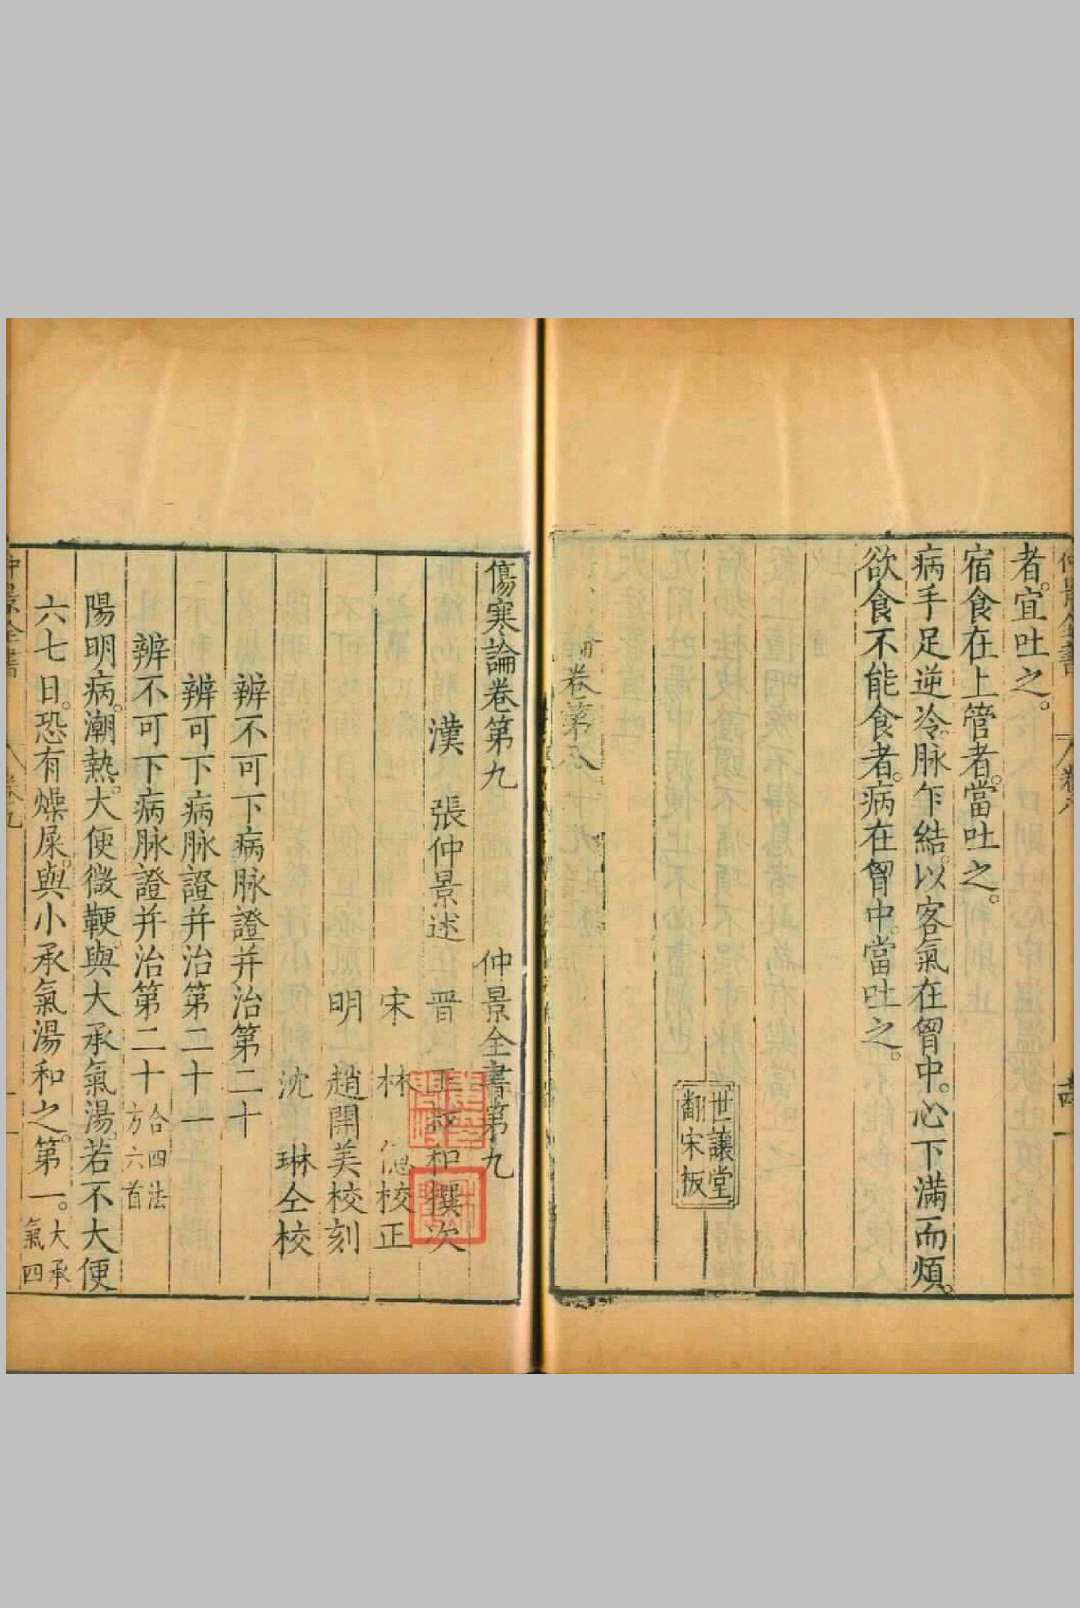 者。宜吐之。
宿食在上管者。當吐之。
病手足逆冷。脉乍結。以客氣在胷中。心下滿而煩。
欲食不能食者。病在胷中。當吐之。
世讓堂
翻宋板
卷第八
傷寒論卷第九　仲景全書第九
漢　張仲景述　晉　王叔和撰次
宋　林　億校正
明　趙開美校刻
沈　琳仝校
辨不可下病脉證并治第二十
辨可下病脉證并治第二十一
辨不可下病脉證并治第二十 合四法 方六首
陽明病。潮熱。大便微鞕。與大承氣湯。若不大便
六七日。恐有燥屎。與小承氣湯和之。第一。大承 氣四
仲景全書　卷九　一